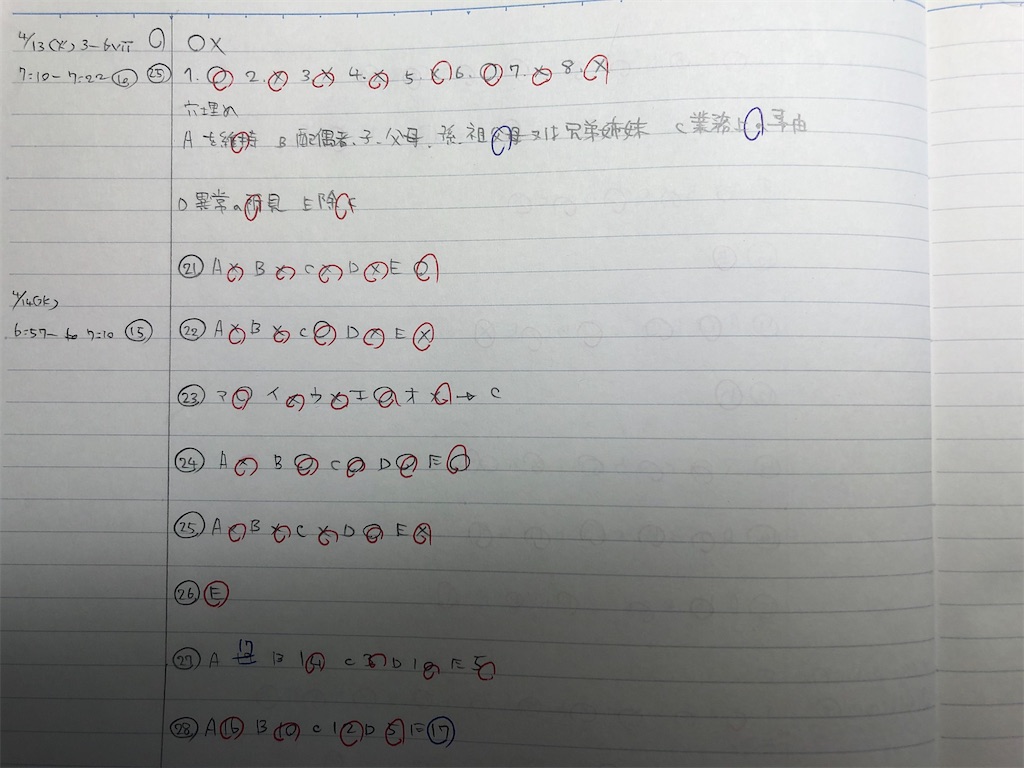 4/13(火) 3-6ⅵπ ○ ○×
7:10-7:22 ⑫ ㉕ 1. ○ 2. × 3 × 4. × 5. × 6. ○ 7. × 8. ×
穴埋め
A を維持 B 配偶者、子、父母、孫、祖父母又は兄弟姉妹 C 業務上の事由
D 異常の所見 E 除く
㉑ A × B × C × D × E ○
4/14(水)
6:57- 7:10 ⑮ ㉒ A × B × C ○ D × E ×
㉓ ア ○ イ × ウ × エ ○ オ × → C
㉔ A × B ○ C ○ D ○ E ○
㉕ A × B × C × D ○ E ×
㉖ E
㉗ A 17 B 14 C D 1 E 5
㉘ A 16 B 10 C 12 D 5 E 17